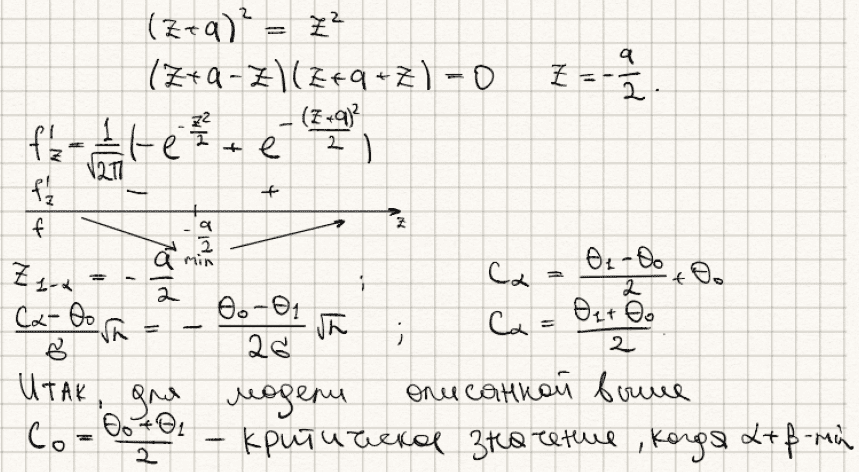 (z+a)² = z²
(z+a-z)(z+a+z) = 0   z = -a/2.
f'_z = 1/√(2π) (-e^(-z²/2) + e^(-(z+a)²/2))
f'_z   -   +
f   -a/2   z
min
z_{1-α} = -a/2 ;   C_α = (θ₁-θ₀)/2 + θ₀
(C_α-θ₀)/σ √n = - (θ₀-θ₁)/(2σ) √n ;   C_α = (θ₁+θ₀)/2.
Итак, для модели описанной выше
C₀ = (θ₀+θ₁)/2 - критическое значение, когда α+β-min